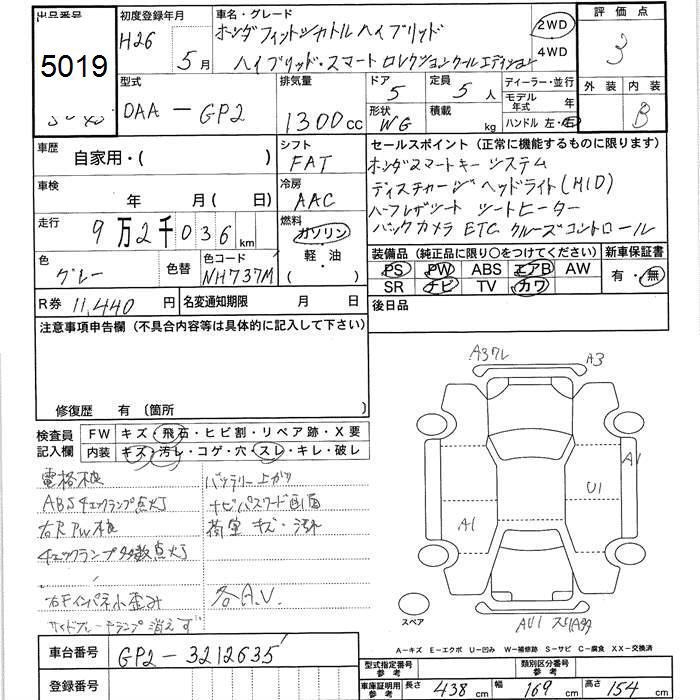 出品番号
5019
初度登録年月
H26
5月
車名・グレード
ホンダ フィットシャトル ハイブリッド
ハイブリッド・スマート セレクション クール エディション
2WD
4WD
評価点
3
外装 内装
B
型式
DAA-GP2
排気量
1300cc
ドア
5
形状
WG
定員
5人
積載
kg
ディーラー・並行
モデル年式 年
ハンドル 左・右
車歴
自家用・( )
シフト
FAT
車検
年 月(日)
冷房
AAC
走行
9万2千036km
燃料
ガソリン
軽・油
( )
色
グレー
色替
色コード
NH737M
セールスポイント(正常に機能するものに限ります)
ホンダスマートキーシステム
ディスチャージヘッドライト(HID)
ハーフレザーシート シートヒーター
バックカメラ ETC クルーズコントロール
装備品(純正品に限り○をつけてください)
PS PW ABS エアB AW
SR ナビ TV カワ
新車保証書
有・無
R券 11,440円
名変通知期限 月 日
後日品
注意事項申告欄(不具合内容等は具体的に記入して下さい)
修復歴 有(箇所 )
検査員記入欄
FW キズ・飛石・ヒビ割・リペア跡・X要
内装 キズ・汚レ・コゲ・穴・スレ・キレ・破レ
電格不良
ABSチェックランプ点灯
右R PW不良
チェックランプ多数点灯
右Fインパネ小歪み
サイドブレーキランプ消えず
バッテリー上がり
ナビパスワード画面
荷室 キズ・汚れ
各A.U.
A3ワレ
A3
A1
U1
A1
スペア
AU1 スリ(A9)
A-キズ E-エクボ U-凹み W-補修跡 S-サビ C-腐食 XX-交換済
車台番号
GP2-3212635
登録番号
型式指定番号
参考
類別区分番号
参考
車庫証明用
参考
長さ 438cm
幅 169cm
高さ 154cm